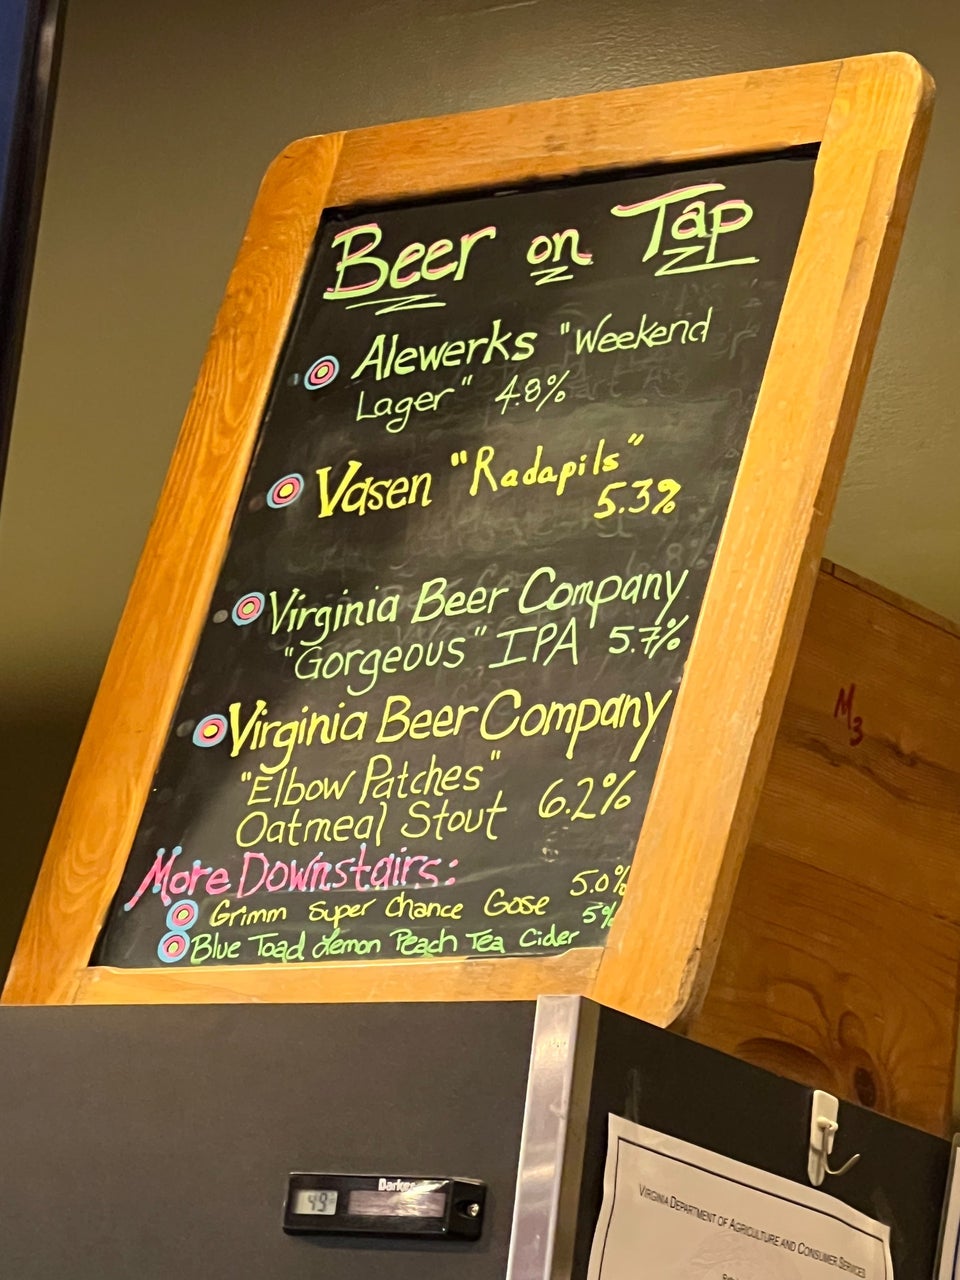 Beer on Tap
Alewerks "Weekend
Lager" 4.8%
Vasen "Radapils"
5.3%
Virginia Beer Company
"Gorgeous" IPA 5.7%
Virginia Beer Company
"Elbow Patches"
Oatmeal Stout 6.2%
More Downstairs:
Grimm Super Chance Gose 5.0%
Blue Toad Lemon Peach Tea Cider 5%
M3
49
VIRGINIA DEPARTMENT OF AGRICULTURE AND CONSUMER SERVICES